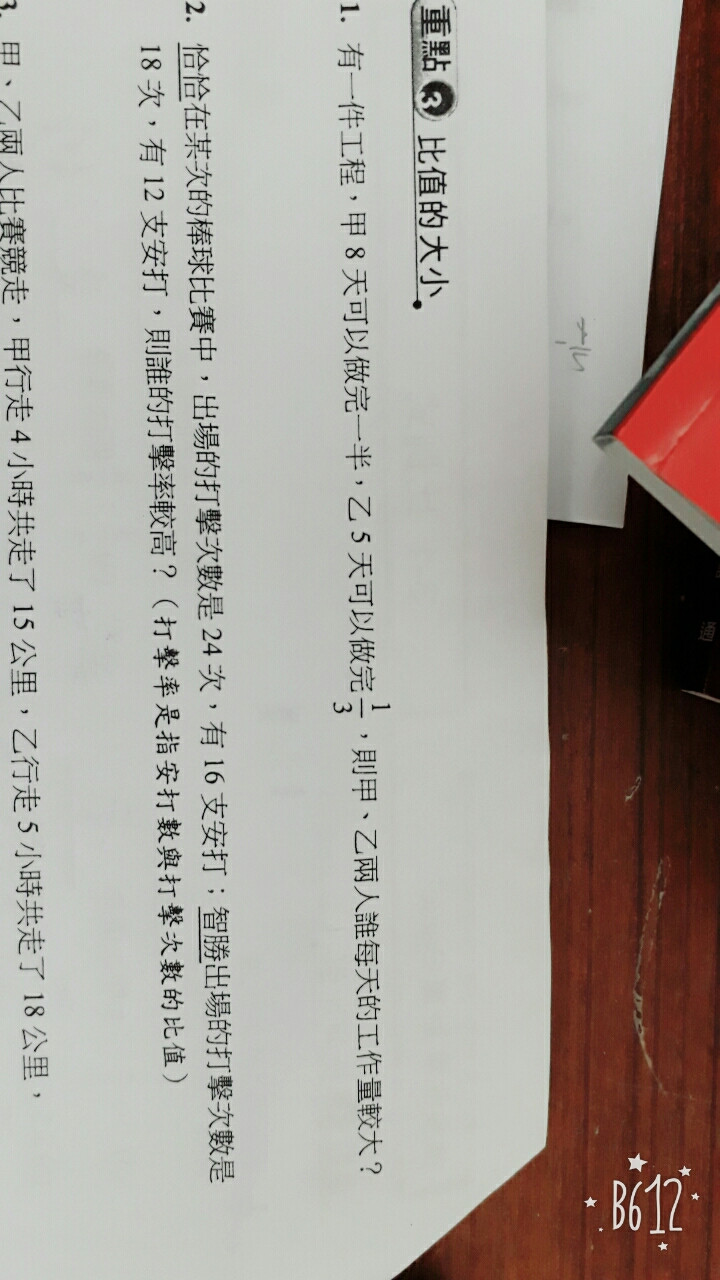 重點 3 比值的大小
1. 有一件工程，甲 8 天可以做完一半，乙 5 天可以做完 1/3，則甲、乙兩人誰每天的工作量較大？
2. 恰恰在某次的棒球比賽中，出場的打擊次數是 24 次，有 16 支安打；智勝出場的打擊次數是
18 次，有 12 支安打，則誰的打擊率較高？（打擊率是指安打數與打擊次數的比值）
3. 甲、乙兩人比賽競走，甲行走 4 小時共走了 15 公里，乙行走 5 小時共走了 18 公里，
B612